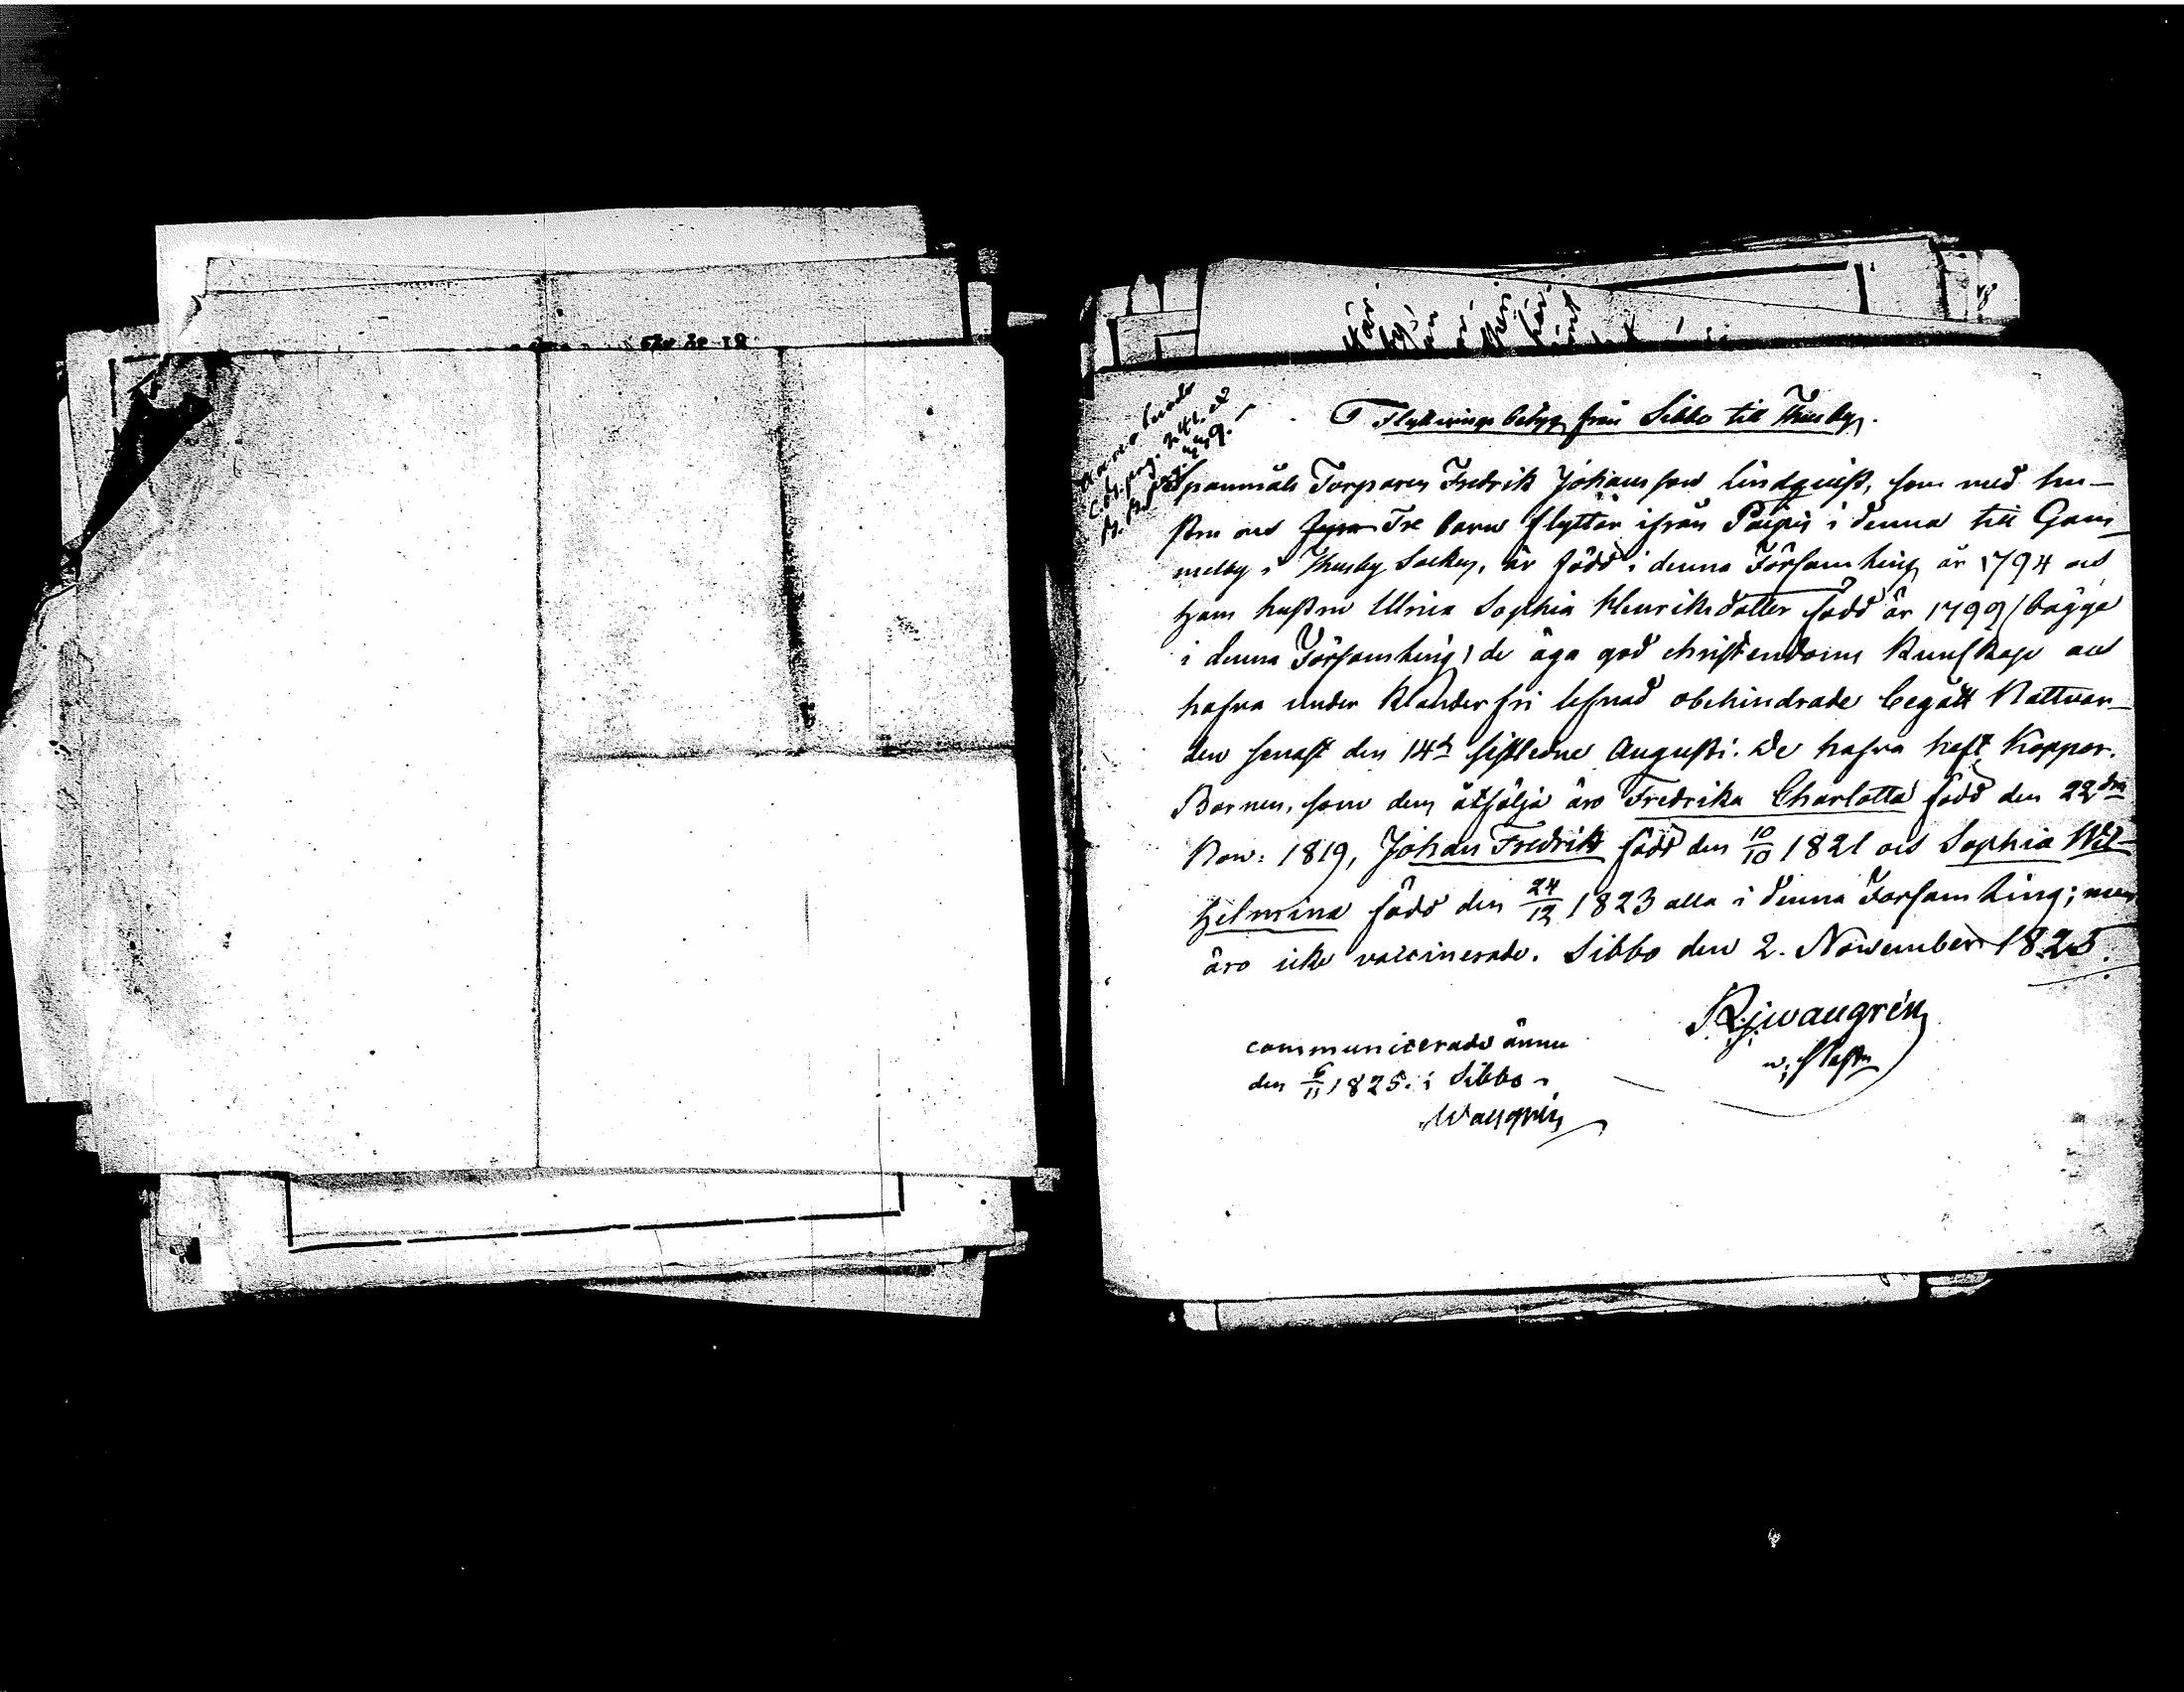 Flyttnings betyg från Sibbo till Thusby.
Spanmåls Torparen Fredrik Johansson Lindqvist, som med hu-
stru och fyra Tre barn flyttar ifrån Paipis i denna till Gam-
melby i Thusby Socken, är född i denna Församling år 1794 och
hans hustru Ulrica Sophia Henriksdotter född år 1799 (bägge
i denna Församling) de äga god christendoms kunskap och
hafva under klanderfri lefnad obehindrade begått Nattvar-
den senast den 14de sistledne Augusti. De hafva haft Koppor.
Barnen, som dem åtfölja äro Fredrika Charlotta född den 22dra
Nov: 1819, Johan Fredrik född den 10/10 1821 och Sophia Wil-
helmina född den 24/12 1823 alla i denna Församling; men
äro icke vaccinerade. Sibbo den 2. November 1825.
Wallgrén
communicerade ännu
den 6/11 1825. i Sibbo
Wallgrén